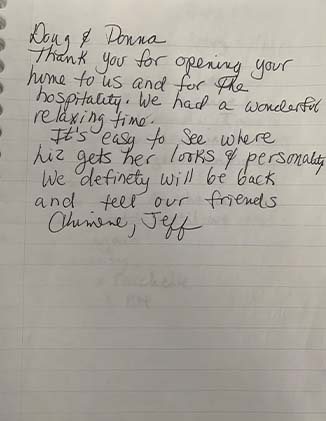 Doug & Donna
Thank you for opening your
home to us and for the
hospitality. We had a wonderful
relaxing time.
It's easy to see where
Liz gets her looks & personality
We definety will be back
and tell our friends
Jeff